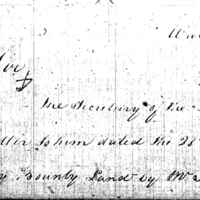 Wa
Sir
The Secretary of the
to him dated the 28
Bounty Land by Wa